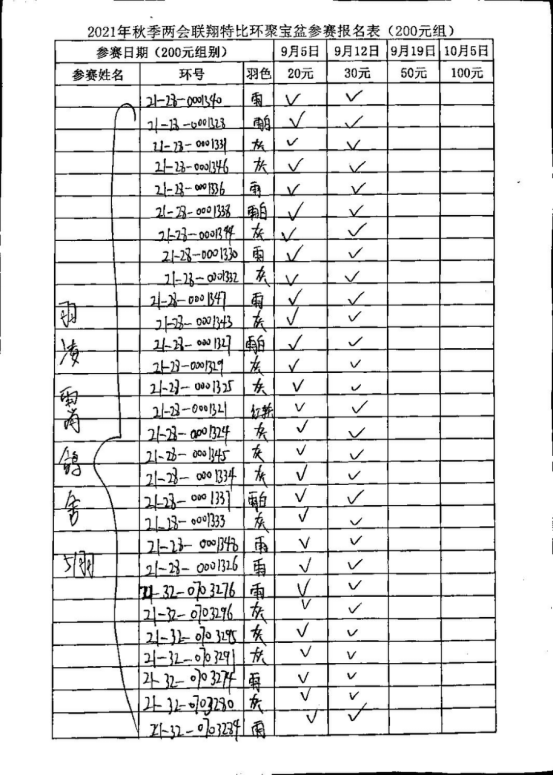 2021年秋季两会联翔特比环聚宝盆参赛报名表（200元组）
参赛日期（200元组别） 9月5日 9月12日 9月19日 10月5日
参赛姓名 环号 羽色 20元 30元 50元 100元
21-28-0001340 雨 ✓ ✓
21-28-0001328 雨白 ✓ ✓
21-28-0001331 灰 ✓ ✓
21-28-0001346 灰 ✓ ✓
21-28-0001336 雨 ✓ ✓
21-28-0001338 雨白 ✓ ✓
21-28-0001344 灰 ✓ ✓
21-28-0001330 雨 ✓ ✓
21-28-0001332 灰 ✓ ✓
21-28-0001347 雨 ✓ ✓
21-28-0001343 灰 ✓ ✓
21-28-0001327 雨白 ✓ ✓
21-28-0001329 灰 ✓ ✓
21-28-0001325 灰 ✓ ✓
21-28-0001321 ✓ ✓
21-28-0001324 灰 ✓ ✓
21-28-0001345 灰 ✓ ✓
21-28-0001334 灰 ✓ ✓
21-28-0001337 雨白 ✓ ✓
21-28-0001333 灰 ✓ ✓
21-28-0001348 雨 ✓ ✓
21-28-0001326 雨 ✓ ✓
21-32-0703276 雨 ✓ ✓
21-32-0703296 灰 ✓ ✓
21-32-0703295 灰 ✓ ✓
21-32-0703291 灰 ✓ ✓
21-32-0703274 雨 ✓ ✓
21-32-0703280 灰 ✓ ✓
21-32-0703284 雨 ✓ ✓
羽凌霄鸽舍